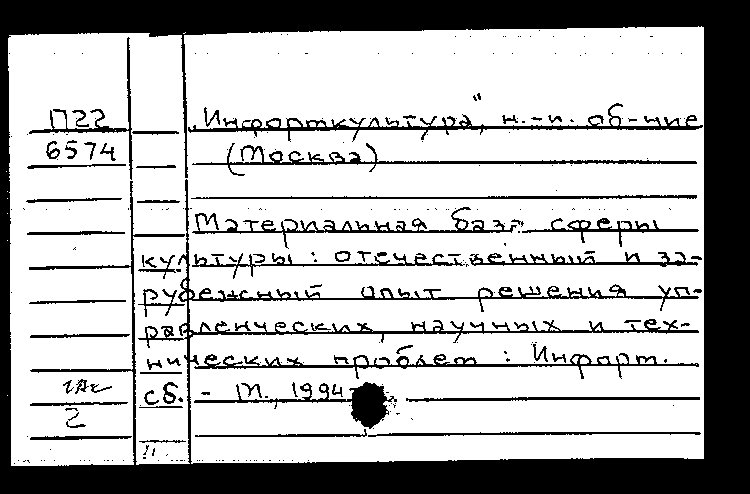 П22 „Информкультура", н.-и. об-ние
6574 (Москва)
Материальная база сферы
культуры : отечественный и за-
рубежный опыт решения уп-
равленческих, научных и тех-
нических проблем : Информ.
сб. - М., 1994-
2